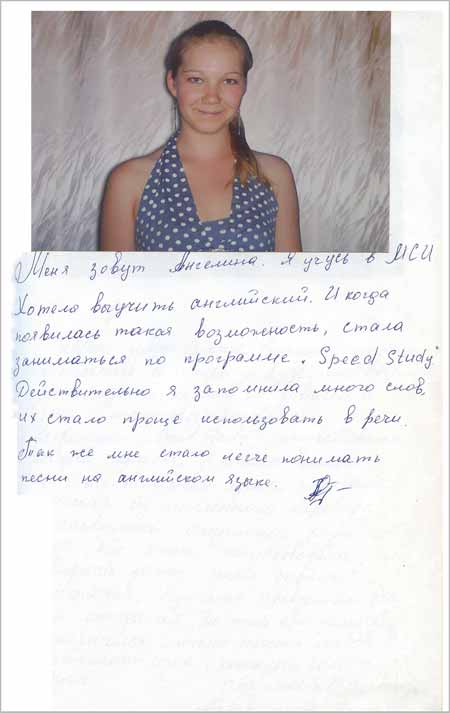 Меня зовут Ангелина. Я учусь в МСИ
Хотела выучить английский. И когда
появилась такая возможность, стала
заниматься по программе „Speed Study"
Действительно я запомнила много слов,
их стало проще использовать в речи.
Так же мне стало легче понимать
песни на английском языке.